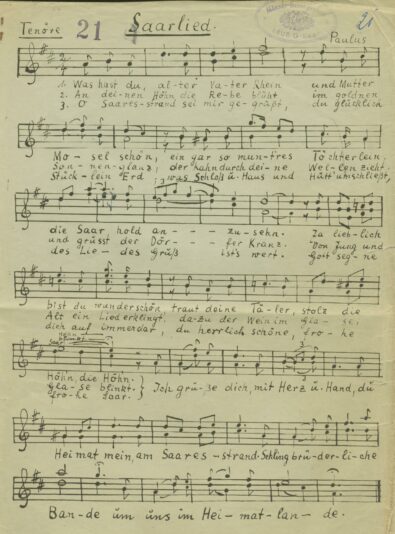 Tenöre 21 Saarlied. 21
Paulus
1. Was hast du, al-ter Va-ter Rhein und Mutter
2. An dei-nen Höhn die Re-be blüht im goldnen
3. O Saares-strand sei mir ge-grüßt, du glücklich
Mo-sel schön, ein gar so mun-tres Töchterlein.
Son-nen-glanz, der Kahn durch dei-ne Wel-len zieht
Stück-lein Erd was Schloß ü. Haus und Hütt' umschließt,
die Saar, hold an---- zu-sehn. Ja lieb-lich
und grüsst der Dör--- fer Kranz. Von jung und
des Lie-des Grüß ist's wert. Gott seg-ne
bist du wunderschön, traut deine Tä-ler, stolz die
Alt ein Lied erklingt, da-zu der Wein im Gla-se,
dich auf immerdar, du herrlich schöne, fro-he
Höhn, die Höhn.
Gla-se blinkt. } Ich grü-ße dich, mit Herz ü. Hand, dü
fro-he Saar.
Heimat mein, am Saares-strand. Schling brü-der-li-che
Ban-de üm üns im Hei-mat-lan-de.